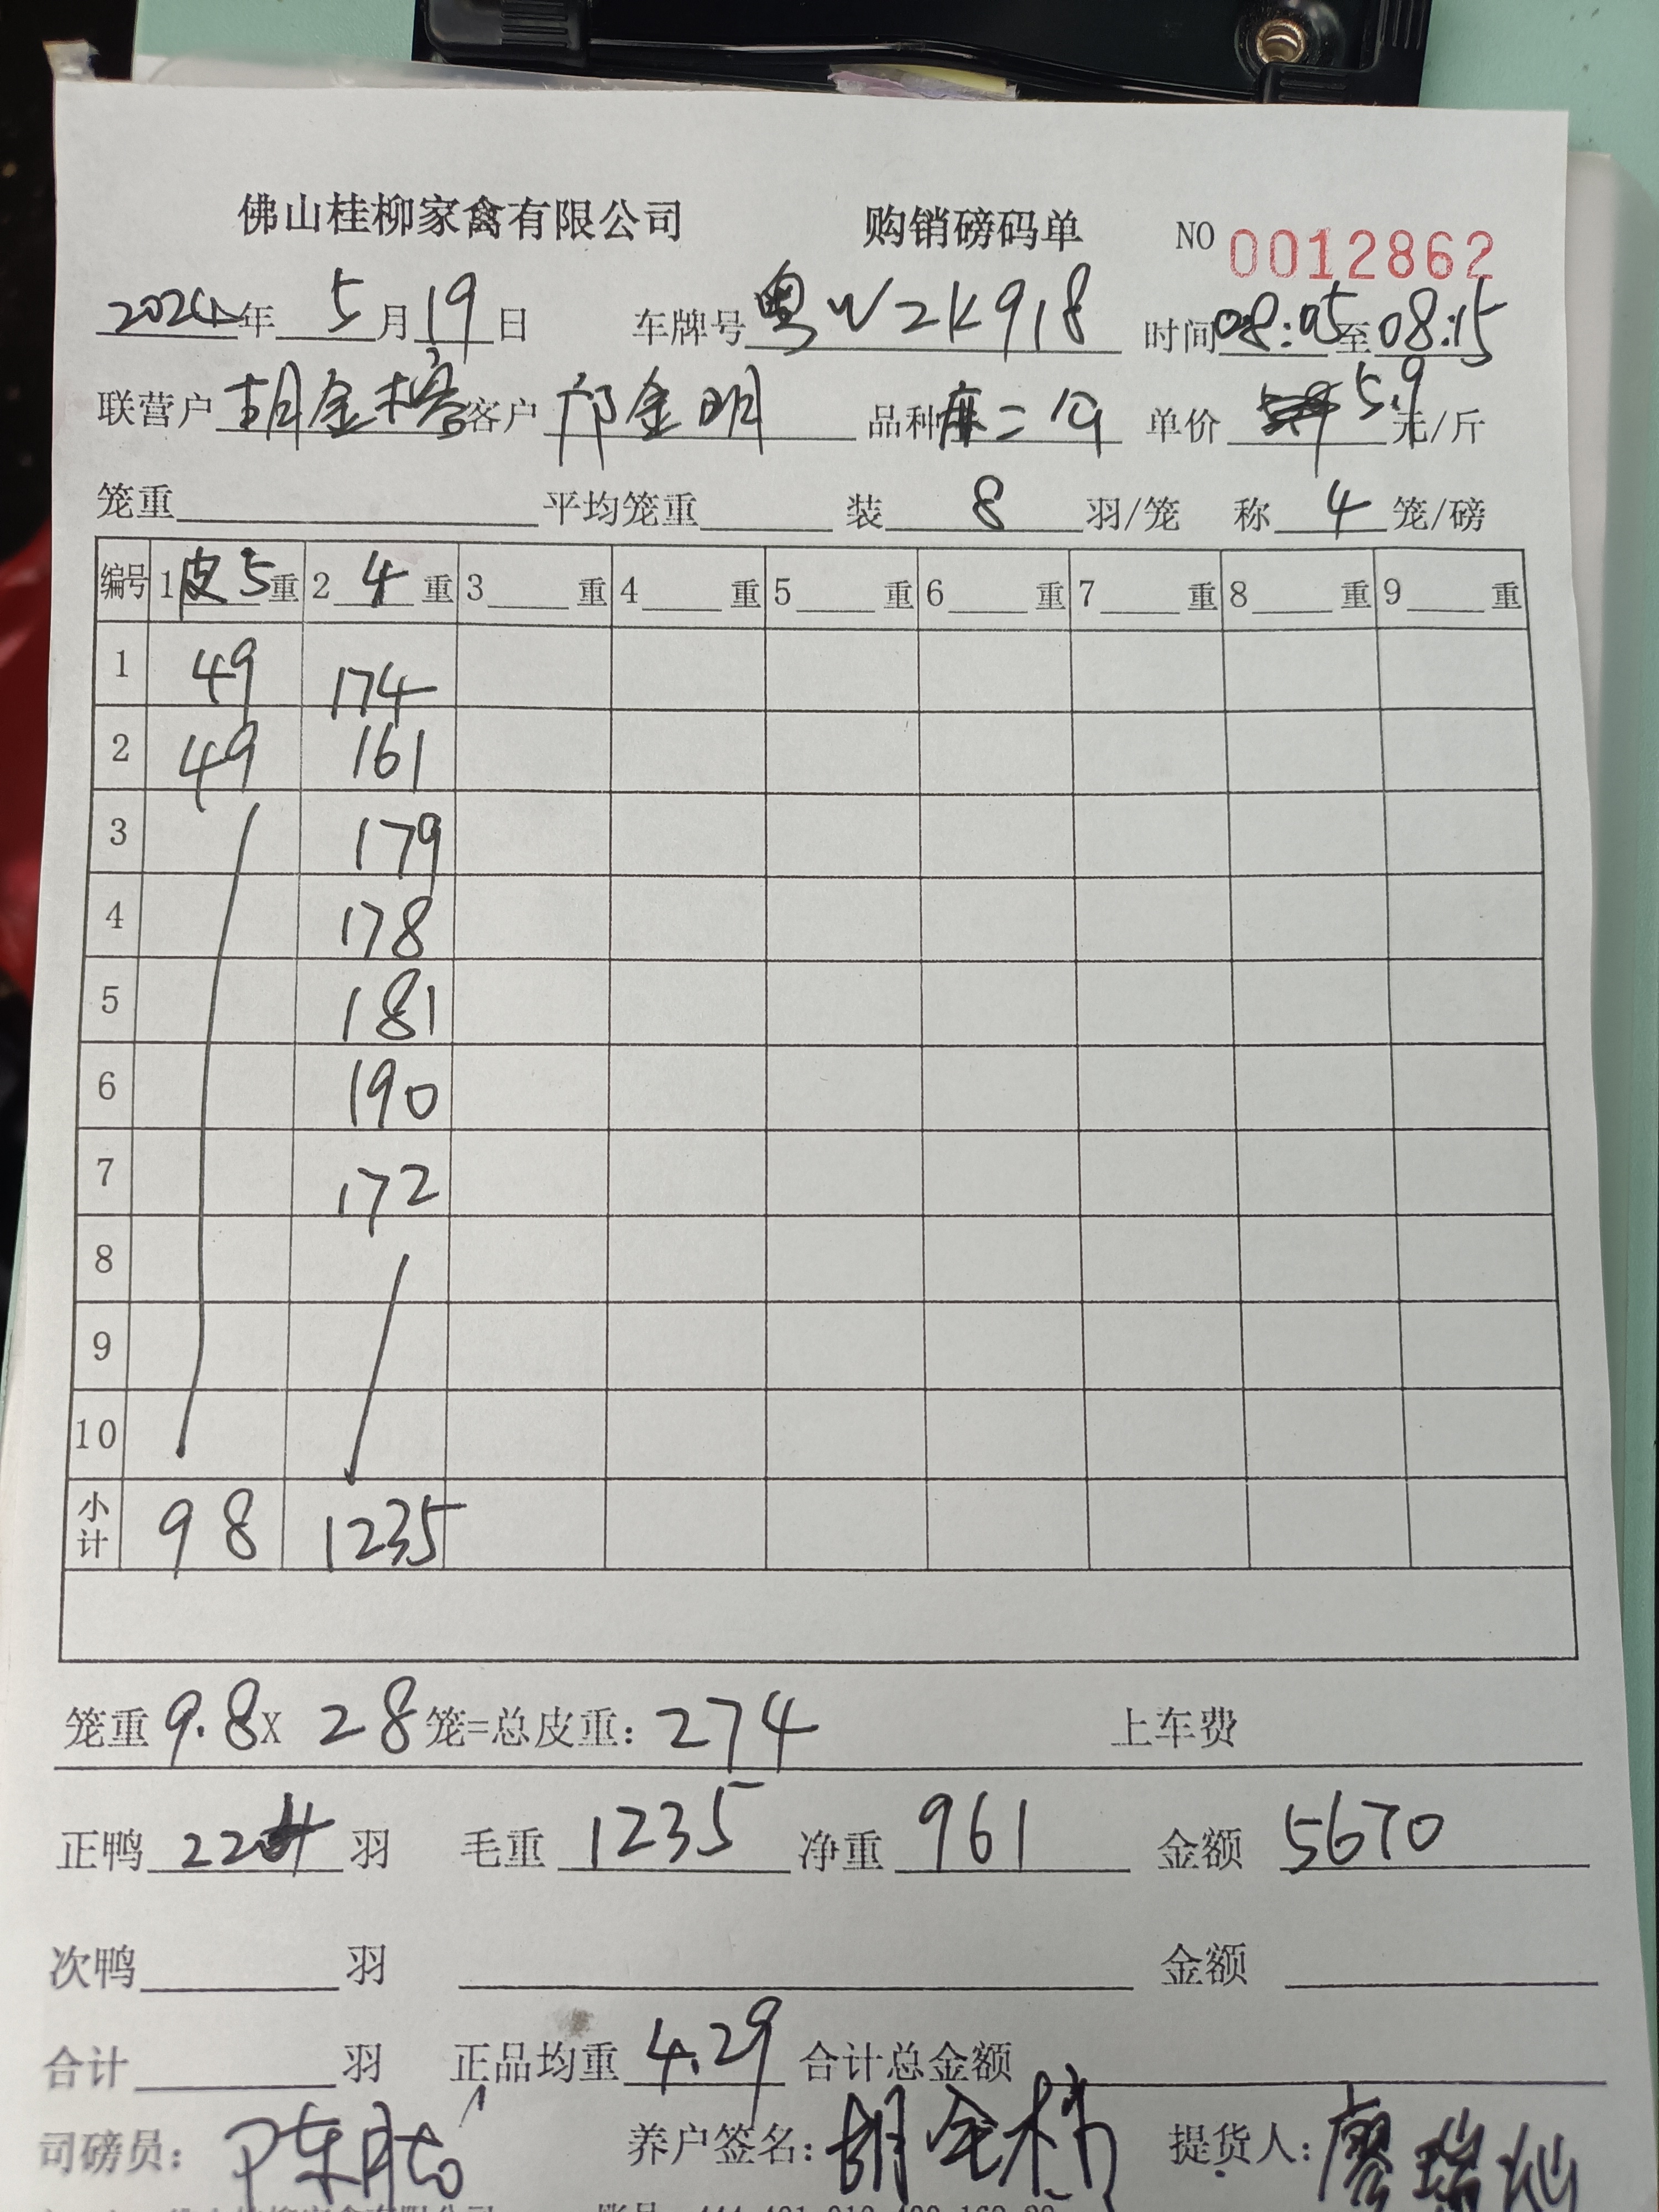 佛山桂柳家禽有限公司 购销磅码单 NO 0012862
2024年 5月19日 车牌号 粤W2K918 时间08:05至08:15
联营户 胡金榕 客户 邝金明 品种麻二公 单价 5.9元/斤
笼重 平均笼重 装 8 羽/笼 称 4 笼/磅
编号 1皮5重 2 4 重 3 重 4 重 5 重 6 重 7 重 8 重 9 重
1 49 174
2 49 161
3 179
4 178
5 181
6 190
7 172
8
9
10
小计 98 1235
笼重 9.8X 28 笼=总皮重: 274 上车费
正鸭 224 羽 毛重 1235 净重 961 金额 5670
次鸭 羽 金额
合计 羽 正品均重 4.29 合计总金额
司磅员: 陈 养户签名: 胡金榕 提货人: 廖瑞灿